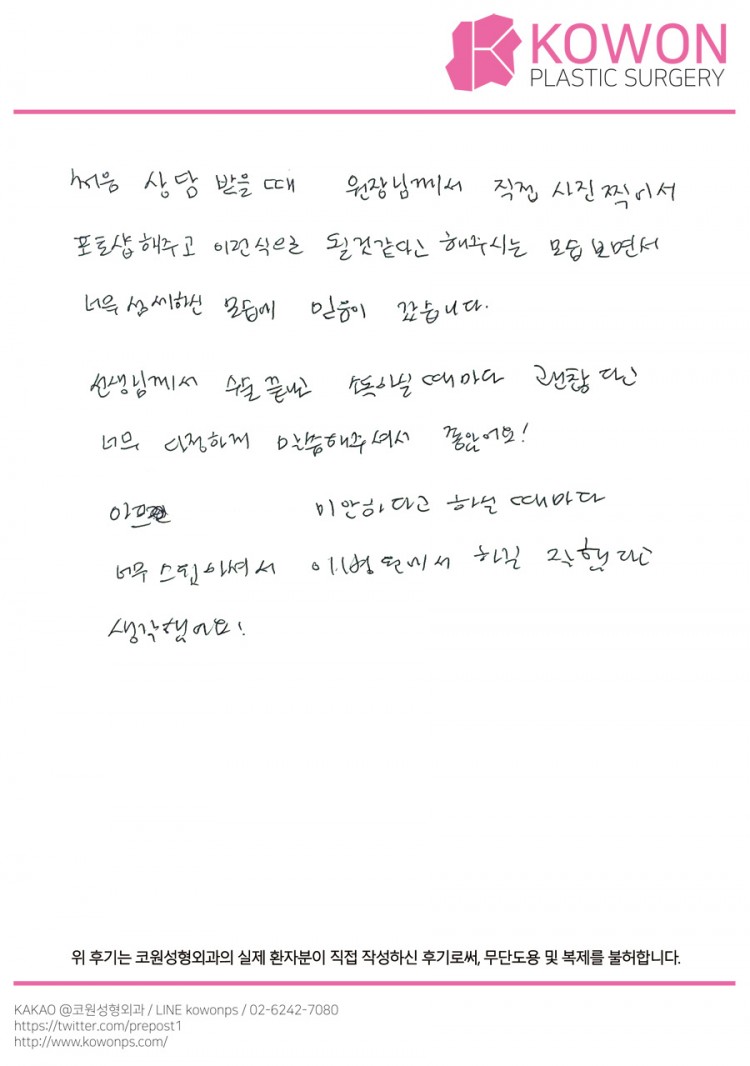 KOWON
PLASTIC SURGERY
처음 상담 받을 때 원장님께서 직접 사진 찍어서
포토샵 해주고 이런식으로 될것같다고 해주시는 모습 보면서
너무 섬세하신 모습에 믿음이 갔습니다.
선생님께서 수술 끝나고 소독하실 때마다 괜찮다고
너무 다정하게 말씀해주셔서 좋았어요!
미안하다고 하실 때마다
너무 스윗하셔서 이 병원에서 하길 잘했다고
생각했어요!
위 후기는 코원성형외과의 실제 환자분이 직접 작성하신 후기로써, 무단도용 및 복제를 불허합니다.
KAKAO @코원성형외과 / LINE kowonps / 02-6242-7080
https://twitter.com/prepost1
http://www.kowonps.com/